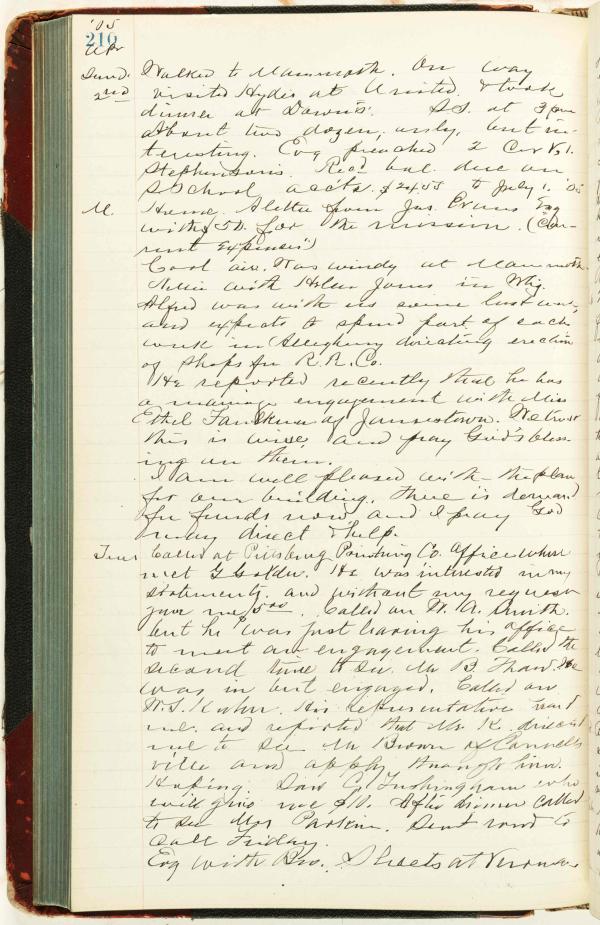 '05
210
Apr
Sund. Walked to Mammoth. On way
2nd visited Hydes at United. & took
dinner at Downs'. S.S. at 3 pm
About two dozen, only, but in-
teresting. Evg preached 2 Cor
Stephenson's. Recd bal. due on
S School accts. $24.55 to July 1. '05
M. Home. A letter from Jas. Evans Esq
with for the mission. (Cur-
rent Expenses)
Cool air. Was windy at Mammoth.
Nellie with Helen Jones in Whg.
Alfred was with us some last week,
and expects to spend part of each
week in Allegheny directing erection
of shops for R.R. Co.
He reported recently that he has
a marriage engagement with Miss
Ethel Faulkner of Jamestown. We trust
this is wise, and pray God's bless-
ing on them.
I am well pleased with the plan
for our building. There is demand
for funds now, and I pray God
may direct & help.
Tues Called at Pittsburg Printing Co. Office where
met G. He was interested in my
statements, and without my request
gave me $5.00. Called on W. A. Smith.
but he was just leaving his office
to meet an engagement. Called the
second time to see Mr B Thaw. He
was in but engaged. Called on
W.S. Kuhn. His representative
me. and reported that Mr. K. directed
me to see Mr Brown of Connells-
ville and apply through him.
Hoping. Saw C. who
will give me $10. After dinner called
to see Mrs Parkin. Sent word to
Call Friday.
Evg with Bro. Sheets at Verona